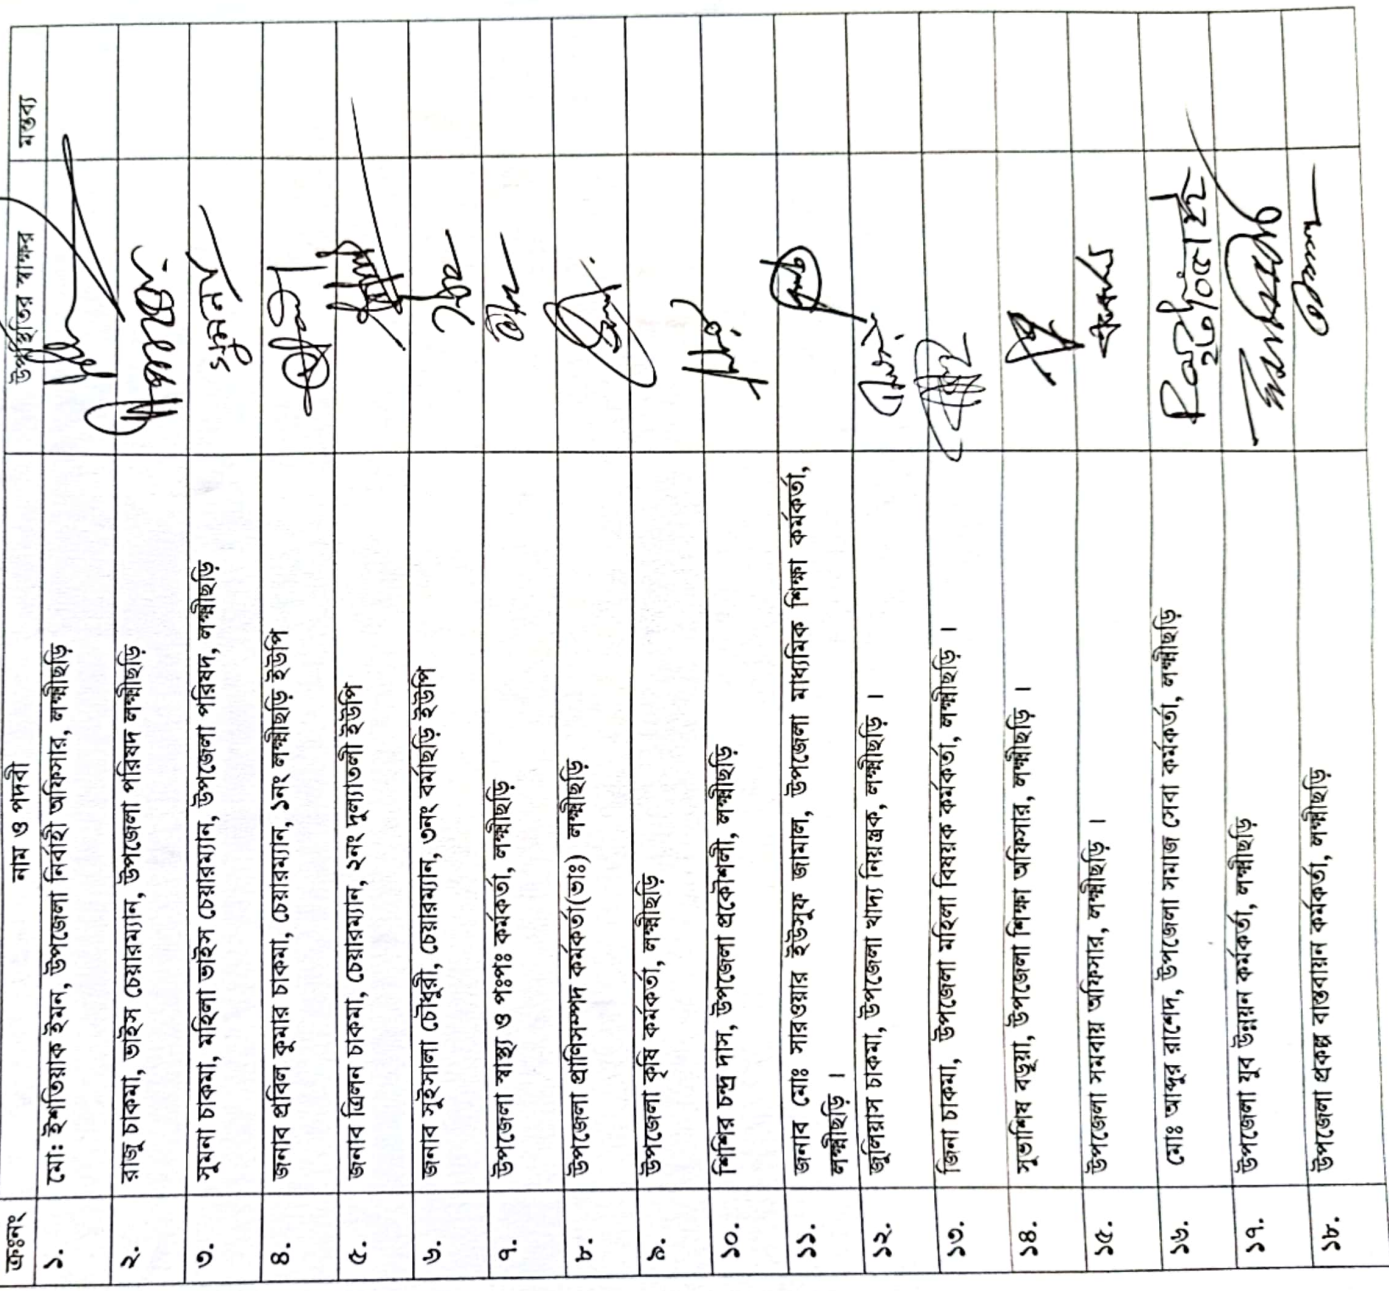 ক্রঃনং নাম ও পদবী উপস্থিতির স্বাক্ষর মন্তব্য
১. মো: ইশতিয়াক ইমন, উপজেলা নির্বাহী অফিসার, লক্ষ্মীছড়ি
২. রাজু চাকমা, ভাইস চেয়ারম্যান, উপজেলা পরিষদ লক্ষ্মীছড়ি
৩. সুমনা চাকমা, মহিলা ভাইস চেয়ারম্যান, উপজেলা পরিষদ, লক্ষ্মীছড়ি
৪. জনাব প্রবিল কুমার চাকমা, চেয়ারম্যান, ১নং লক্ষ্মীছড়ি ইউপি
৫. জনাব ত্রিলন চাকমা, চেয়ারম্যান, ২নং দুল্যাতলী ইউপি
৬. জনাব সুইসালা চৌধুরী, চেয়ারম্যান, ৩নং বর্মাছড়ি ইউপি
৭. উপজেলা স্বাস্থ্য ও পঃপঃ কর্মকর্তা, লক্ষ্মীছড়ি
৮. উপজেলা প্রাণিসম্পদ কর্মকর্তা(ভাঃ) লক্ষ্মীছড়ি
৯. উপজেলা কৃষি কর্মকর্তা, লক্ষ্মীছড়ি
১০. শিশির চন্দ্র দাস, উপজেলা প্রকৌশলী, লক্ষ্মীছড়ি
১১. জনাব মোঃ সারওয়ার ইউসুফ জামাল, উপজেলা মাধ্যমিক শিক্ষা কর্মকর্তা,
লক্ষ্মীছড়ি ।
১২. জুলিয়াস চাকমা, উপজেলা খাদ্য নিয়ন্ত্রক, লক্ষ্মীছড়ি ।
১৩. জিনা চাকমা, উপজেলা মহিলা বিষয়ক কর্মকর্তা, লক্ষ্মীছড়ি ।
১৪. সুভাশিষ বড়ুয়া, উপজেলা শিক্ষা অফিসার, লক্ষ্মীছড়ি ।
১৫. উপজেলা সমবায় অফিসার, লক্ষ্মীছড়ি ।
১৬. মোঃ আব্দুর রাশেদ, উপজেলা সমাজ সেবা কর্মকর্তা, লক্ষ্মীছড়ি
১৭. উপজেলা যুব উন্নয়ন কর্মকর্তা, লক্ষ্মীছড়ি
১৮. উপজেলা প্রকল্প বাস্তবায়ন কর্মকর্তা, লক্ষ্মীছড়ি